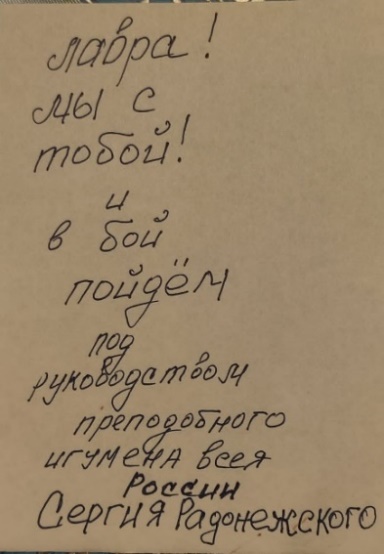 лавра!
мы с
тобой!
и
в бой
пойдём
под
руководством
преподобного
игумена всея
России
Сергия Радонежского